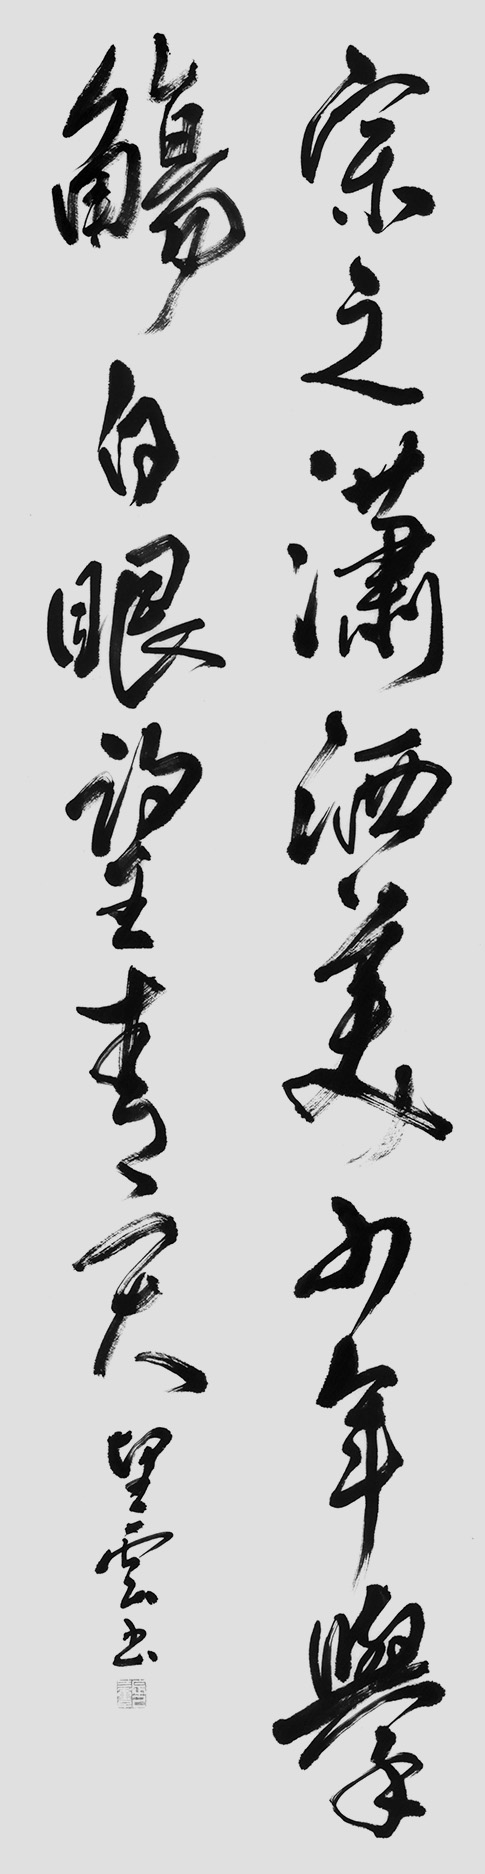 宗之瀟洒美少年舉
觴白眼望青天
望雲書